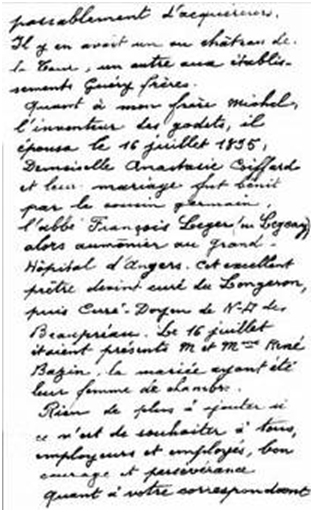 passablement d'acquéreurs.
Il y en avait un au château de
la Tour, un autre aux établis-
sements Guéry frères.
Quant à mon frère Michel,
l'inventeur des godets, il
épousa le 16 juillet 1895,
Demoiselle Anastasie Coiffard
et leur mariage fut bénit
par le cousin germain,
l'abbé François Leger (ou Legeay)
alors aumônier au grand-
Hôpital d'Angers. Cet excellent
prêtre devint curé du Longeron,
puis Curé-Doyen de N-D des
Beaupréau. Le 16 juillet
étaient présents M et Mme René
Bazin, la mariée ayant été
leur femme de chambre.
Rien de plus à ajouter si
ce n'est de souhaiter à tous,
employeurs et employés, bon
courage et persévérance
Quant à votre correspondant